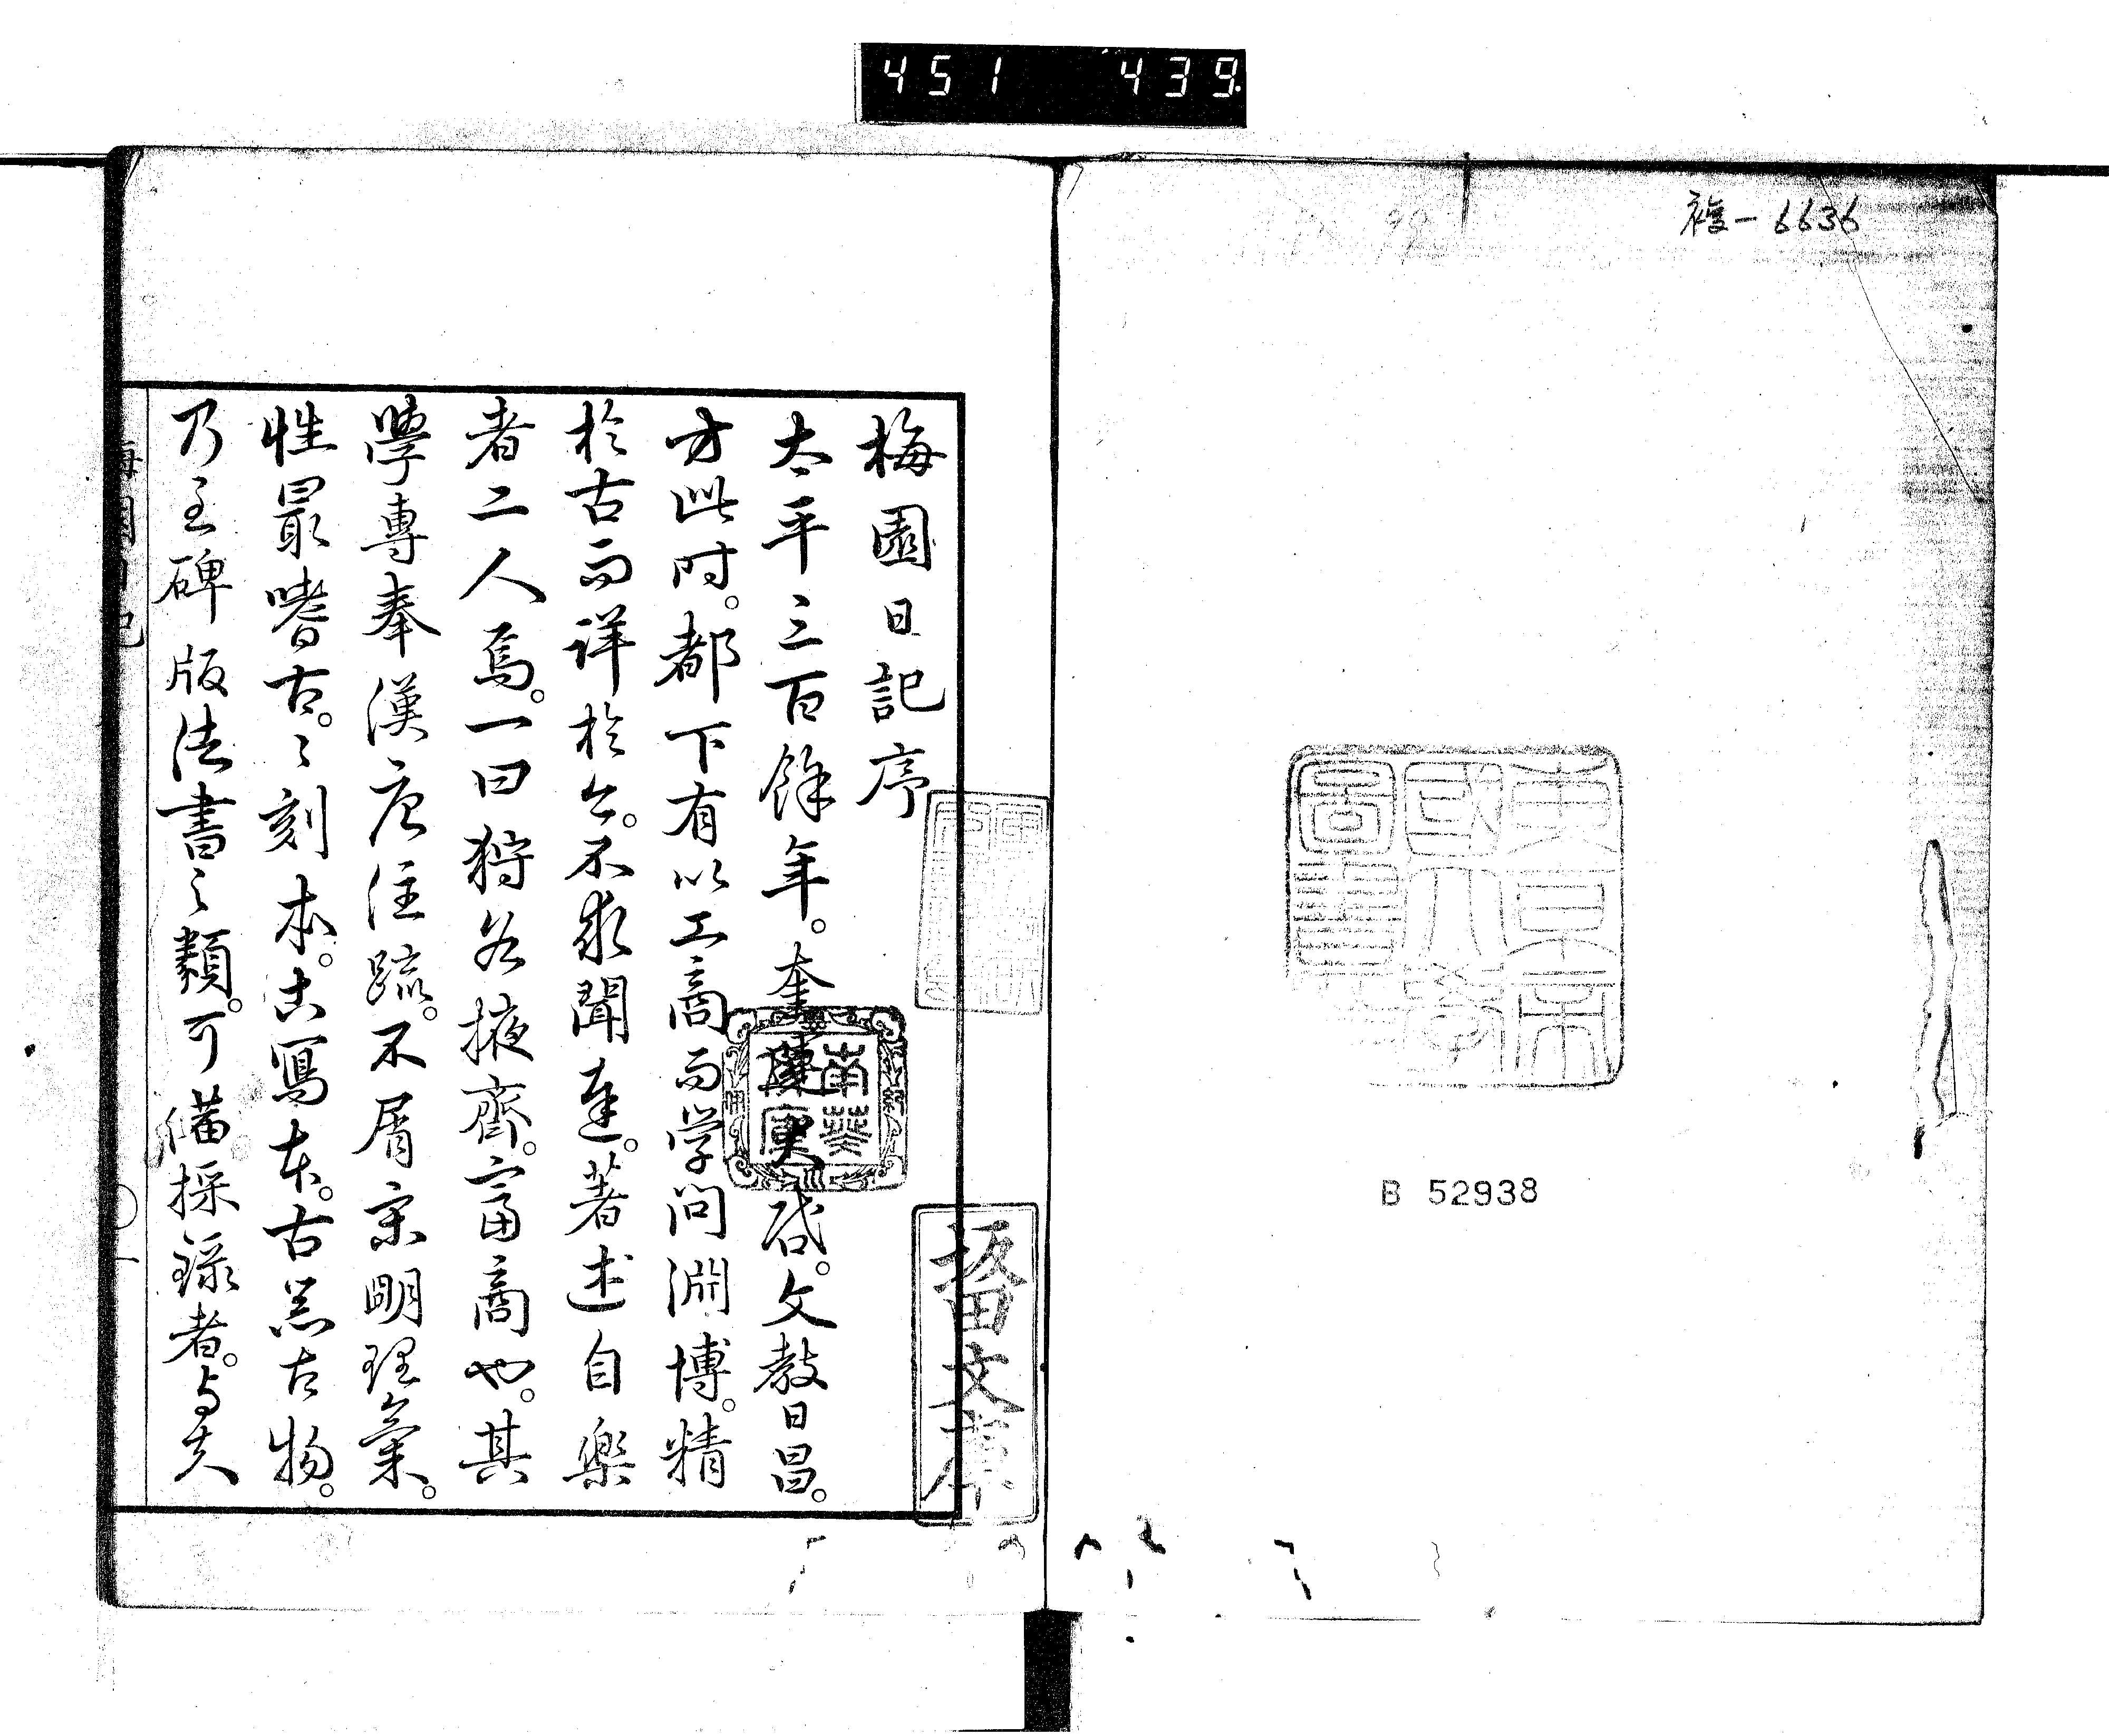 451 439
複-6636
東京帝
國大學
圖書
B 52938
南葵
文庫
阪田文庫
梅園日記序
太平三百餘年。奎運 啓。文教日昌。
方此时。都下有以工商而学問淵博。精
於古而详於今。不求聞達。著述自樂
者二人焉。一曰狩谷掖齋。富商也。其
學專奉漢唐注疏。不屑宋明理氣。
性最嗜古。〻刻本。古寫本。古器古物。
乃至碑版法書之類。可備採録者。与夫
梅園日記
一